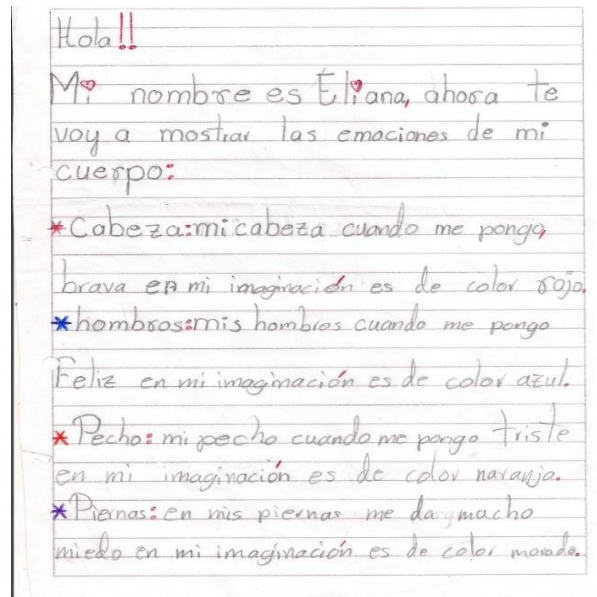 Hola!!
Mi nombre es Eliana, ahora te
voy a mostrar las emociones de mi
cuerpo:
*Cabeza: mi cabeza cuando me pongo,
brava en mi imaginación es de color rojo.
*hombros: mis hombros cuando me pongo
Feliz en mi imaginación es de color azul.
*Pecho: mi pecho cuando me pongo triste
en mi imaginación es de color naranja.
*Piernas: en mis piernas me da mucho
miedo en mi imaginación es de color morado.